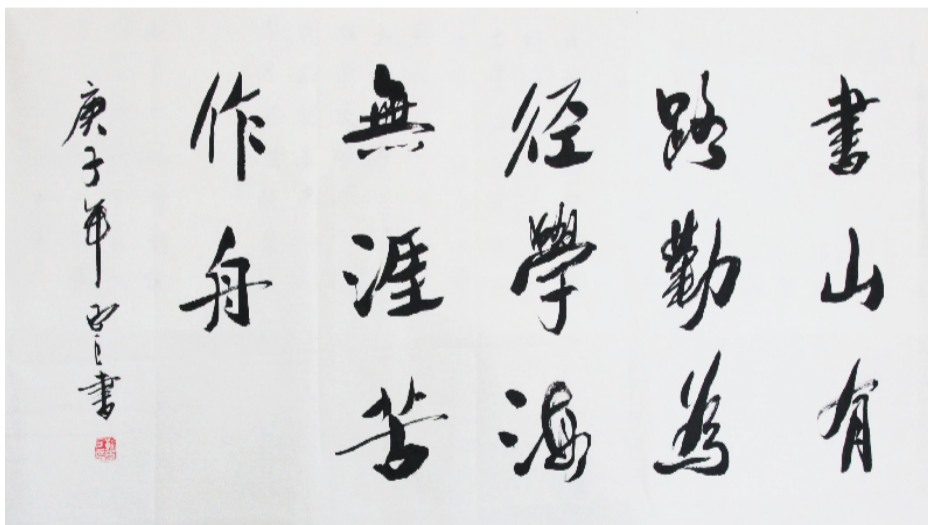 書山有
路勤為
徑學海
無涯苦
作舟
庚子年
書